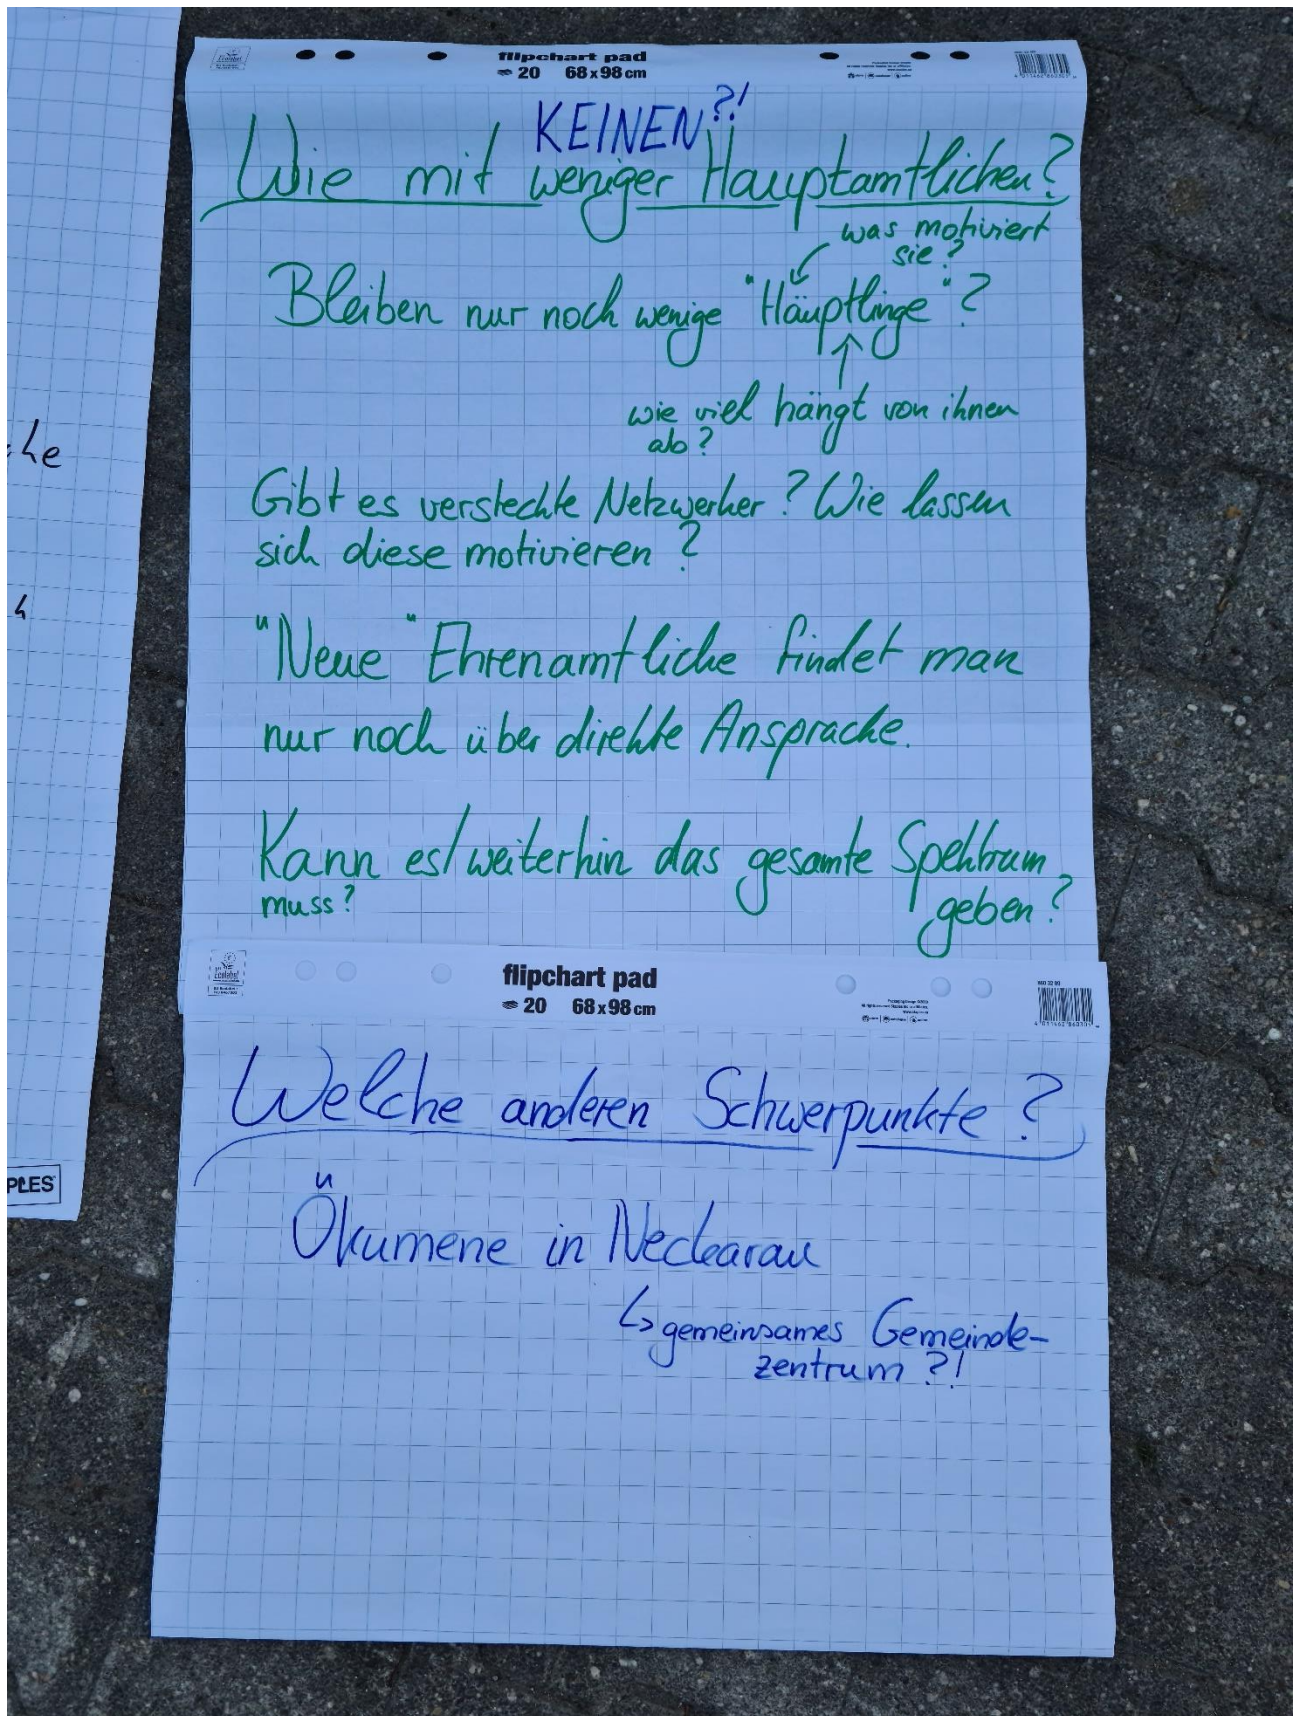 flipchart pad
20 68 x 98 cm
KEINEN?!
Wie mit weniger Hauptamtlichen?
was motiviert
sie?
Bleiben nur noch wenige "Häuptlinge"?
wie viel hängt von ihnen
ab?
Gibt es versteckte Netzwerker? Wie lassen
sich diese motivieren?
"Neue" Ehrenamtliche findet man
nur noch über direkte Ansprache.
Kann es/weiterhin das gesamte Spektrum
muss?
geben?
flipchart pad
20 68 x 98 cm
Welche anderen Schwerpunkte?
Ökumene in Neckarau
↳ gemeinsames Gemeinde-
zentrum?!
he
h
PLES